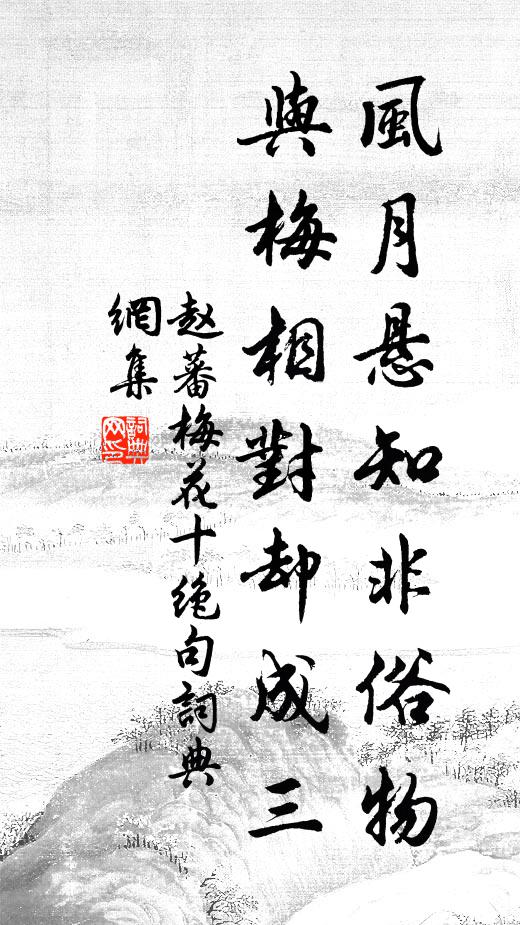 風月悬知非俗物
與梅相對却成三
赵蕃梅花十绝句詞典
網集
詞典
网印